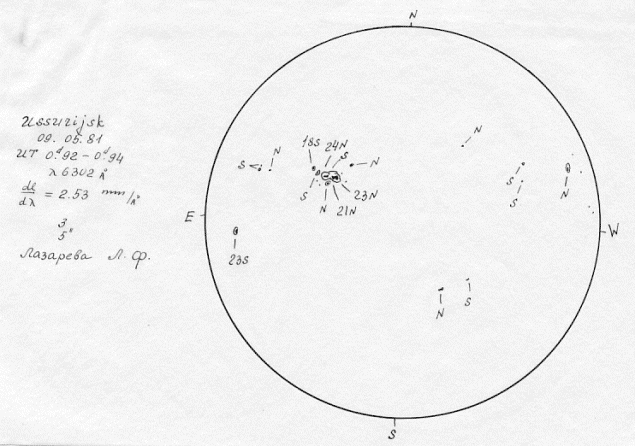 N
Ussurijsk
09. 05. 81
UT 0.ᵈ92 – 0.ᵈ94
λ 6302 Å
dl/dλ = 2.53 mm/Å
3
5"
Лазарева Л. Ф.
18S 24N S N
S N
N
S
S
N
S N 21N 23N
E
W
23S
N S
S